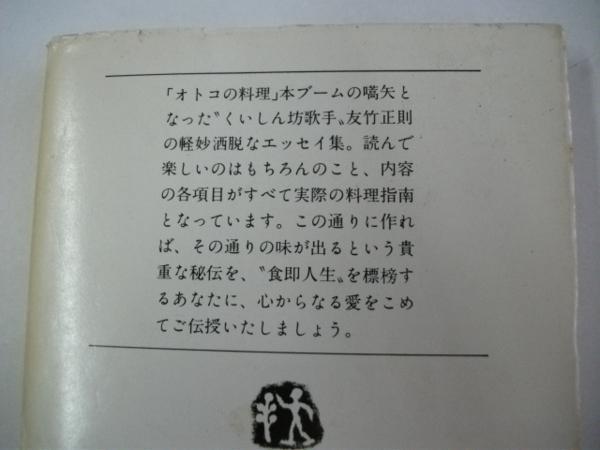 「オトコの料理」本ブームの嚆矢と
なった〝くいしん坊歌手〟友竹正則
の軽妙洒脱なエッセイ集。読んで
楽しいのはもちろんのこと、内容
の各項目がすべて実際の料理指南
となっています。この通りに作れ
ば、その通りの味が出るという貴
重な秘伝を、〝食即人生〟を標榜す
るあなたに、心からなる愛をこめ
てご伝授いたしましょう。